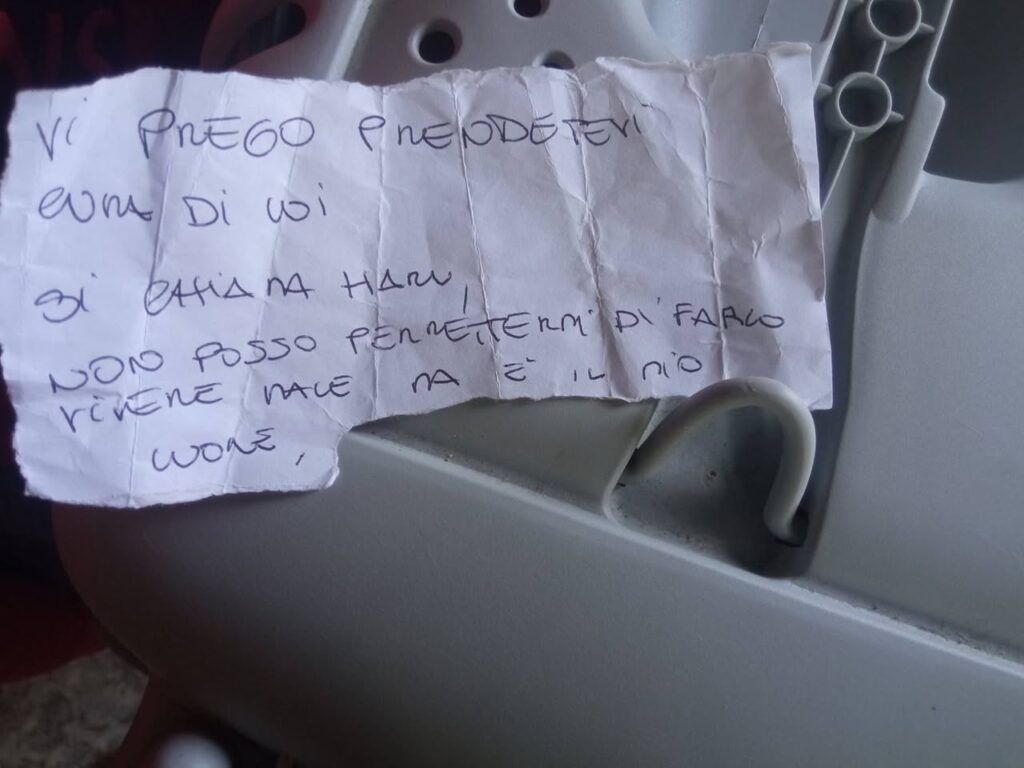 VI PREGO PRENDETEVI
CURA DI LUI
SI CHIAMA HARU,
NON POSSO PERMETTERMI DI FARLO
VIVERE MALE MA È IL MIO
CUORE,